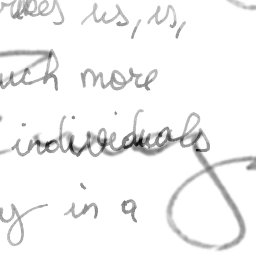 us, is,
much more
individuals
y in a